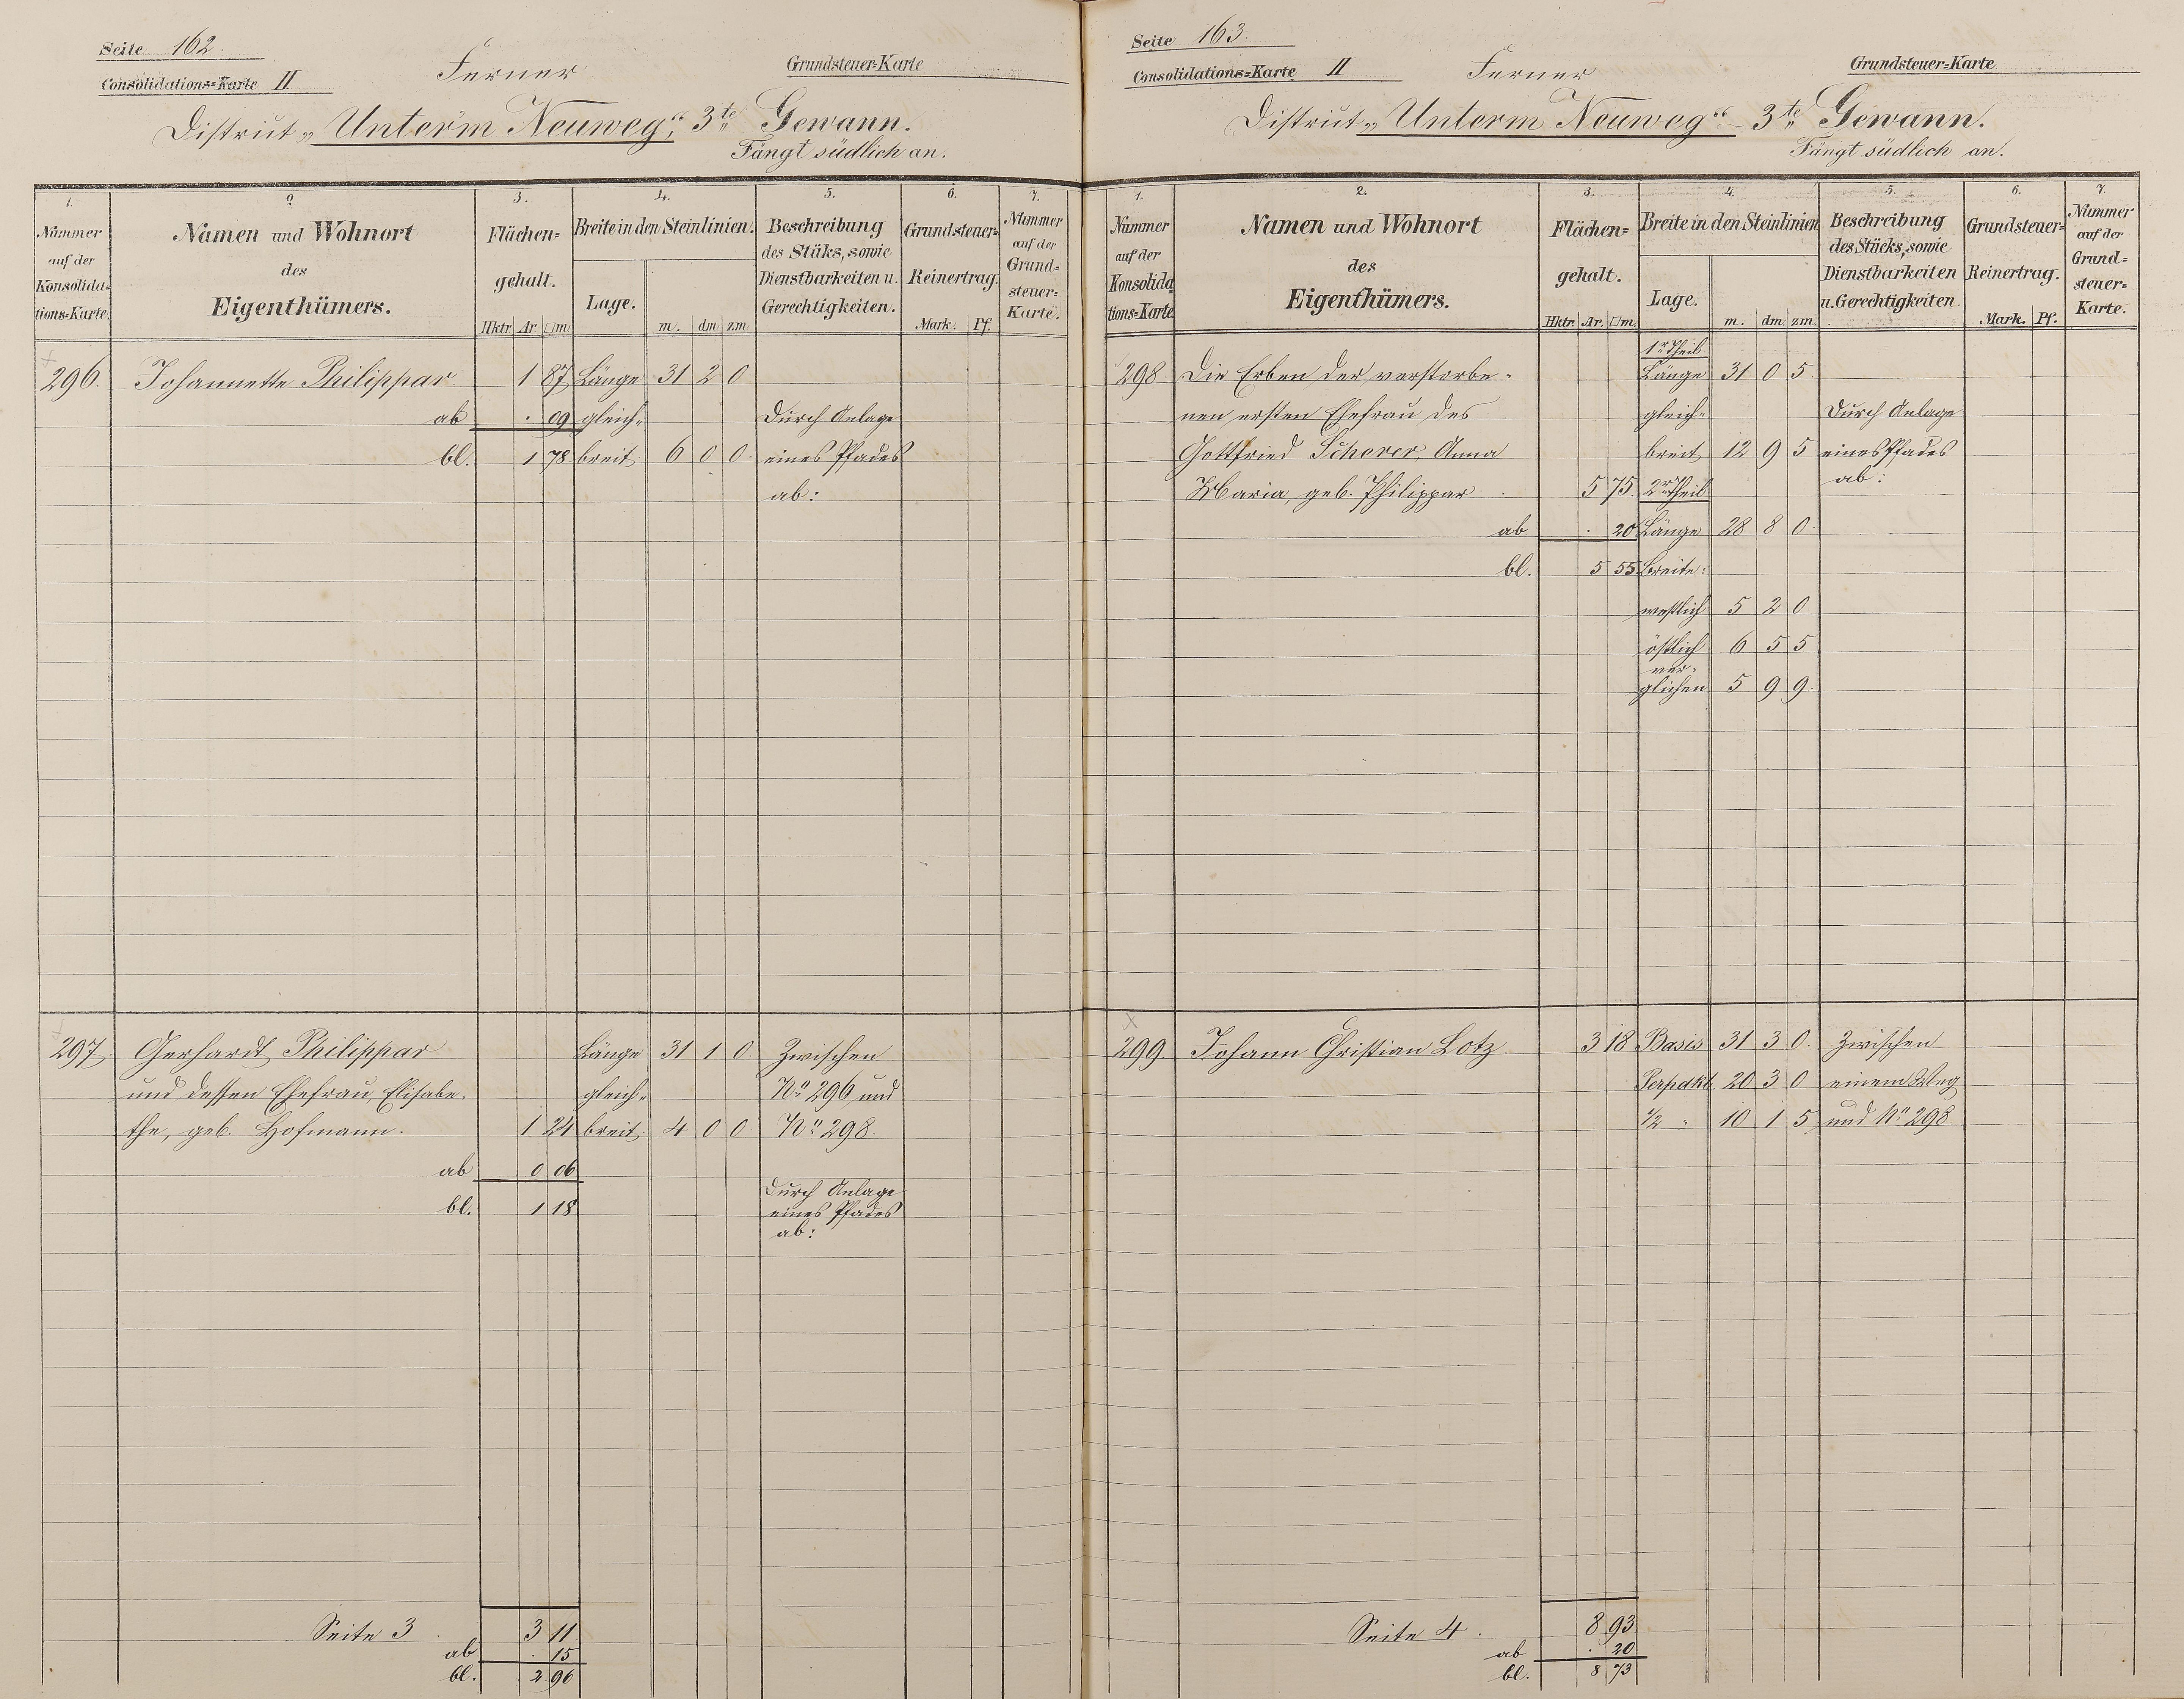 Seite 162.
Consolidations=Karte II
Ferner
Grundsteuer=Karte
District „Unter'm Neuweg“, 3te Gewann.
Fängt südlich an.
1. 2. 3. 4. 5. 6. 7.
Nummer auf der Konsolida=tions=Karte
Namen und Wohnort des Eigenthümers.
Flächen=gehalt.
Hktr. Ar. □m.
Breite in den Steinlinien.
Lage. m. dm zm
Beschreibung des Stüks, sowie Dienstbarkeiten u. Gerechtigkeiten.
Grundsteuer=Reinertrag.
Mark. Pf.
Nummer auf der Grund=steuer=Karte.
296. Johannette Philippar 1 87 Länge 31 2 0
ab . 09 gleich= Durch Anlage
bl. 1 78 breit 6 0 0 eines Pfades
ab:
297. Gerhardt Philippar Länge 31 1 0 Zwischen
und dessen Ehefrau, Elisabe= gleich= No 296 und
the, geb. Hofmann. 1 24 breit 4 0 0 No 298.
ab 0 06
Durch Anlage
bl. 1 18 eines Pfades
ab:
Seite 3 3 11
ab . 15
bl. 2 96
Seite 163.
Consolidations=Karte II
Ferner
Grundsteuer=Karte
District „Unterm Neuweg“ 3te Gewann.
Fängt südlich an.
1. 2. 3. 4. 5. 6. 7.
Nummer auf der Konsolida=tions=Karte
Namen und Wohnort des Eigenthümers.
Flächen=gehalt.
Hktr. Ar. □m.
Breite in den Steinlinien
Lage. m. dm zm
Beschreibung des Stücks, sowie Dienstbarkeiten u. Gerechtigkeiten.
Grundsteuer=Reinertrag.
Mark. Pf.
Nummer auf der Grund=steuer=Karte.
1r Theil
298 Die Erben der verstorbe= Länge 31 0 5
nen ersten Ehefrau des gleich= Durch Anlage
Gottfried Scherer, Anna breit 12 9 5 eines Pfades
Maria, geb. Philippar . 5 75 2r Theil ab:
ab . 20 Länge 28 8 0
bl. 5 55 Breite:
westlich 5 2 0
östlich 6 5 5
ver=
glichen 5 9 9
299. Johann Christian Lotz 3 18 Basis 31 3 0 Zwischen
Perpdkl 20 3 0 einem Weg
1/2 " 10 1 5 und No 298
Seite 4 . 8 93
ab . 20
bl. 8 73